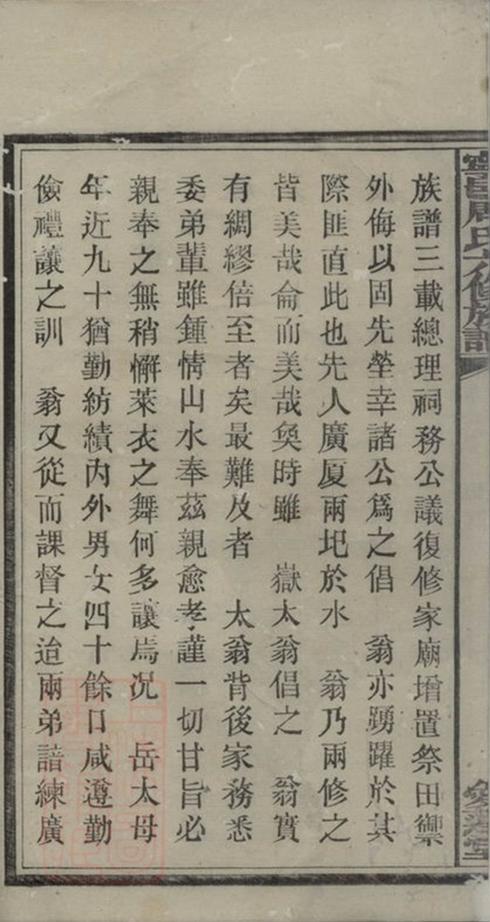 寧邑周氏六修族譜
族譜三載總理祠務公議復修家廟增置祭田禦
外侮以固先塋幸諸公爲之倡　翁亦踴躍於其
際匪直此也先人廣厦兩圮於水　翁乃兩修之
皆美哉侖而美哉奐時雖　嶽太翁倡之　翁實
有綢繆倍至者矣最難及者　太翁背後家務悉
委弟輩雖鍾情山水奉茲親愈孝謹一切甘旨必
親奉之無稍懈萊衣之舞何多讓焉况　岳太母
年近九十猶勤紡績內外男女四十餘口咸遵勤
儉禮讓之訓　翁又從而課督之迨兩弟諳練廣